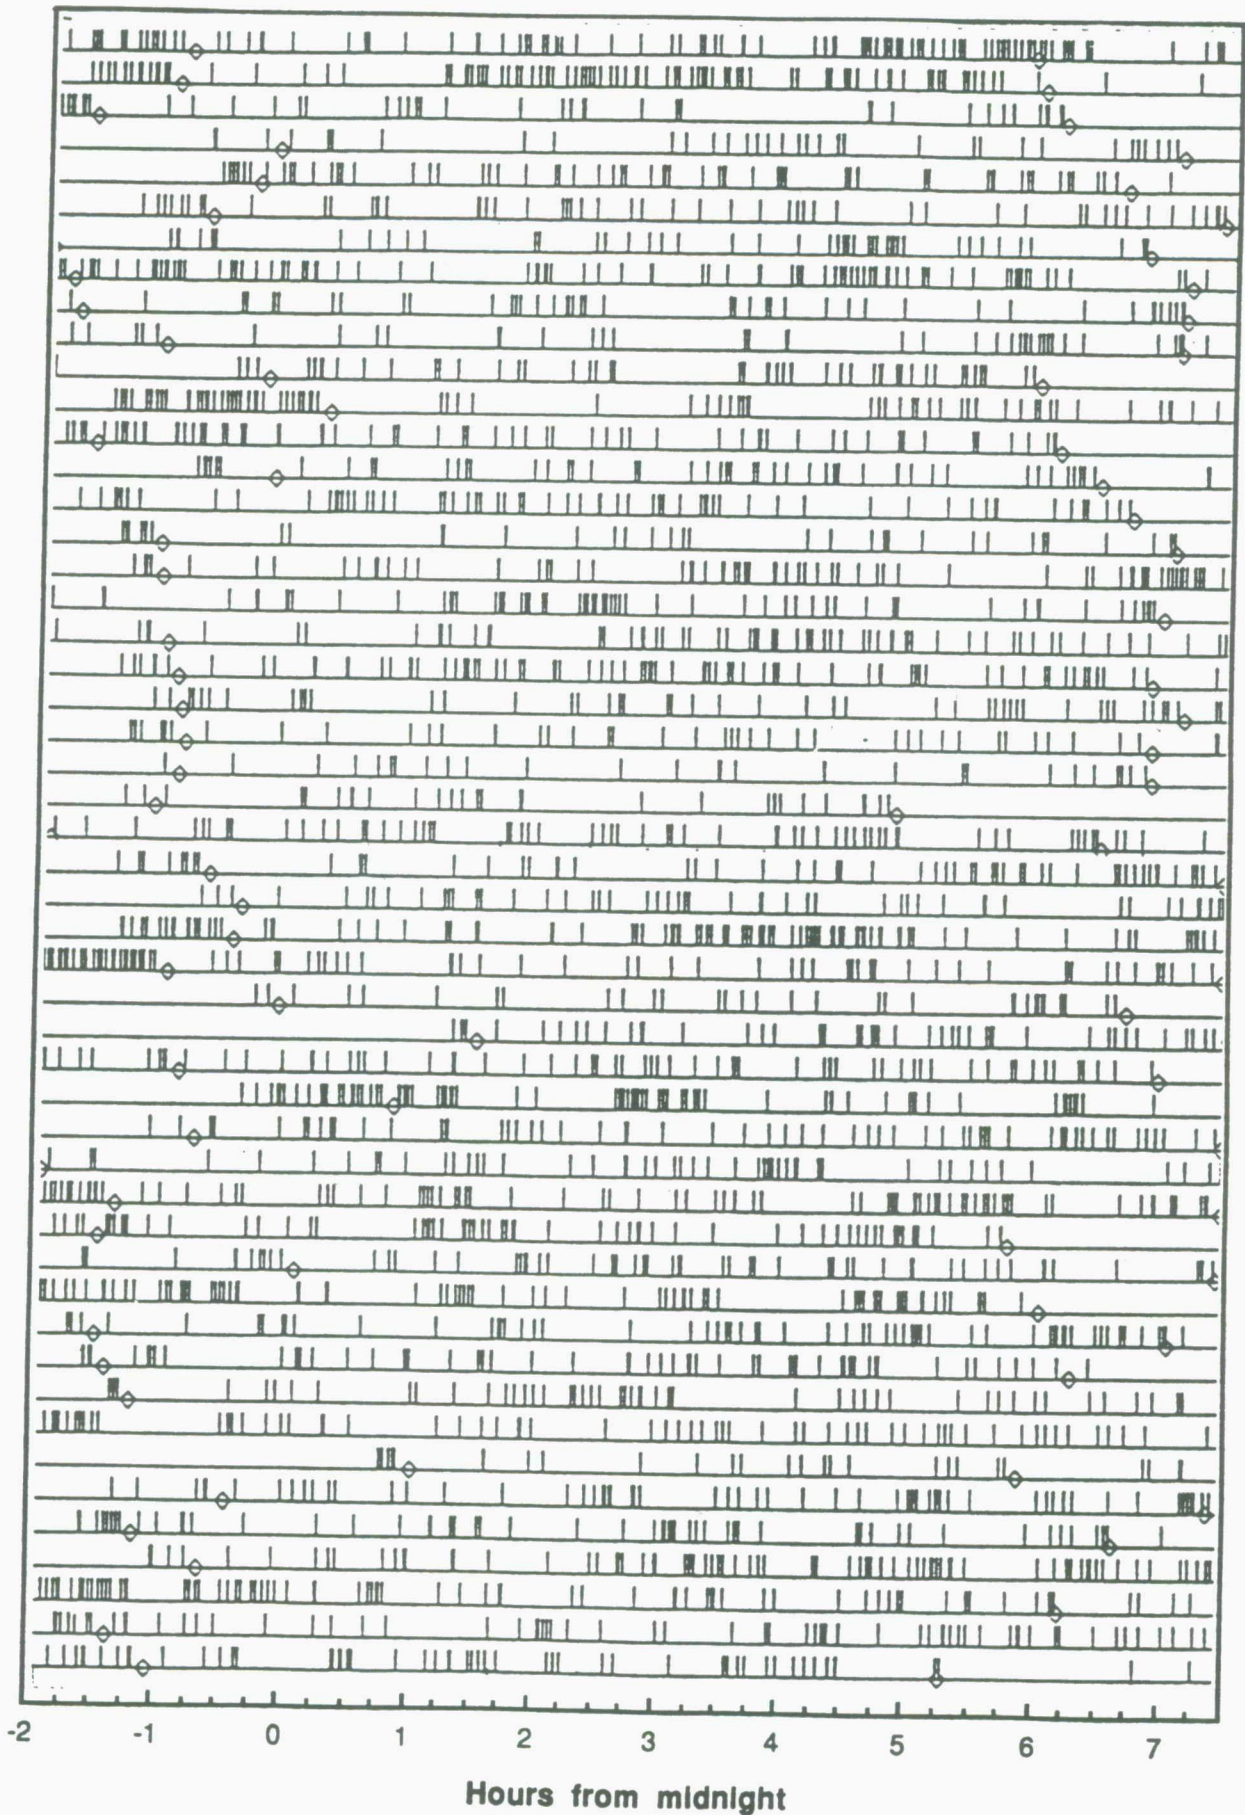 -2 -1 0 1 2 3 4 5 6 7
Hours from midnight